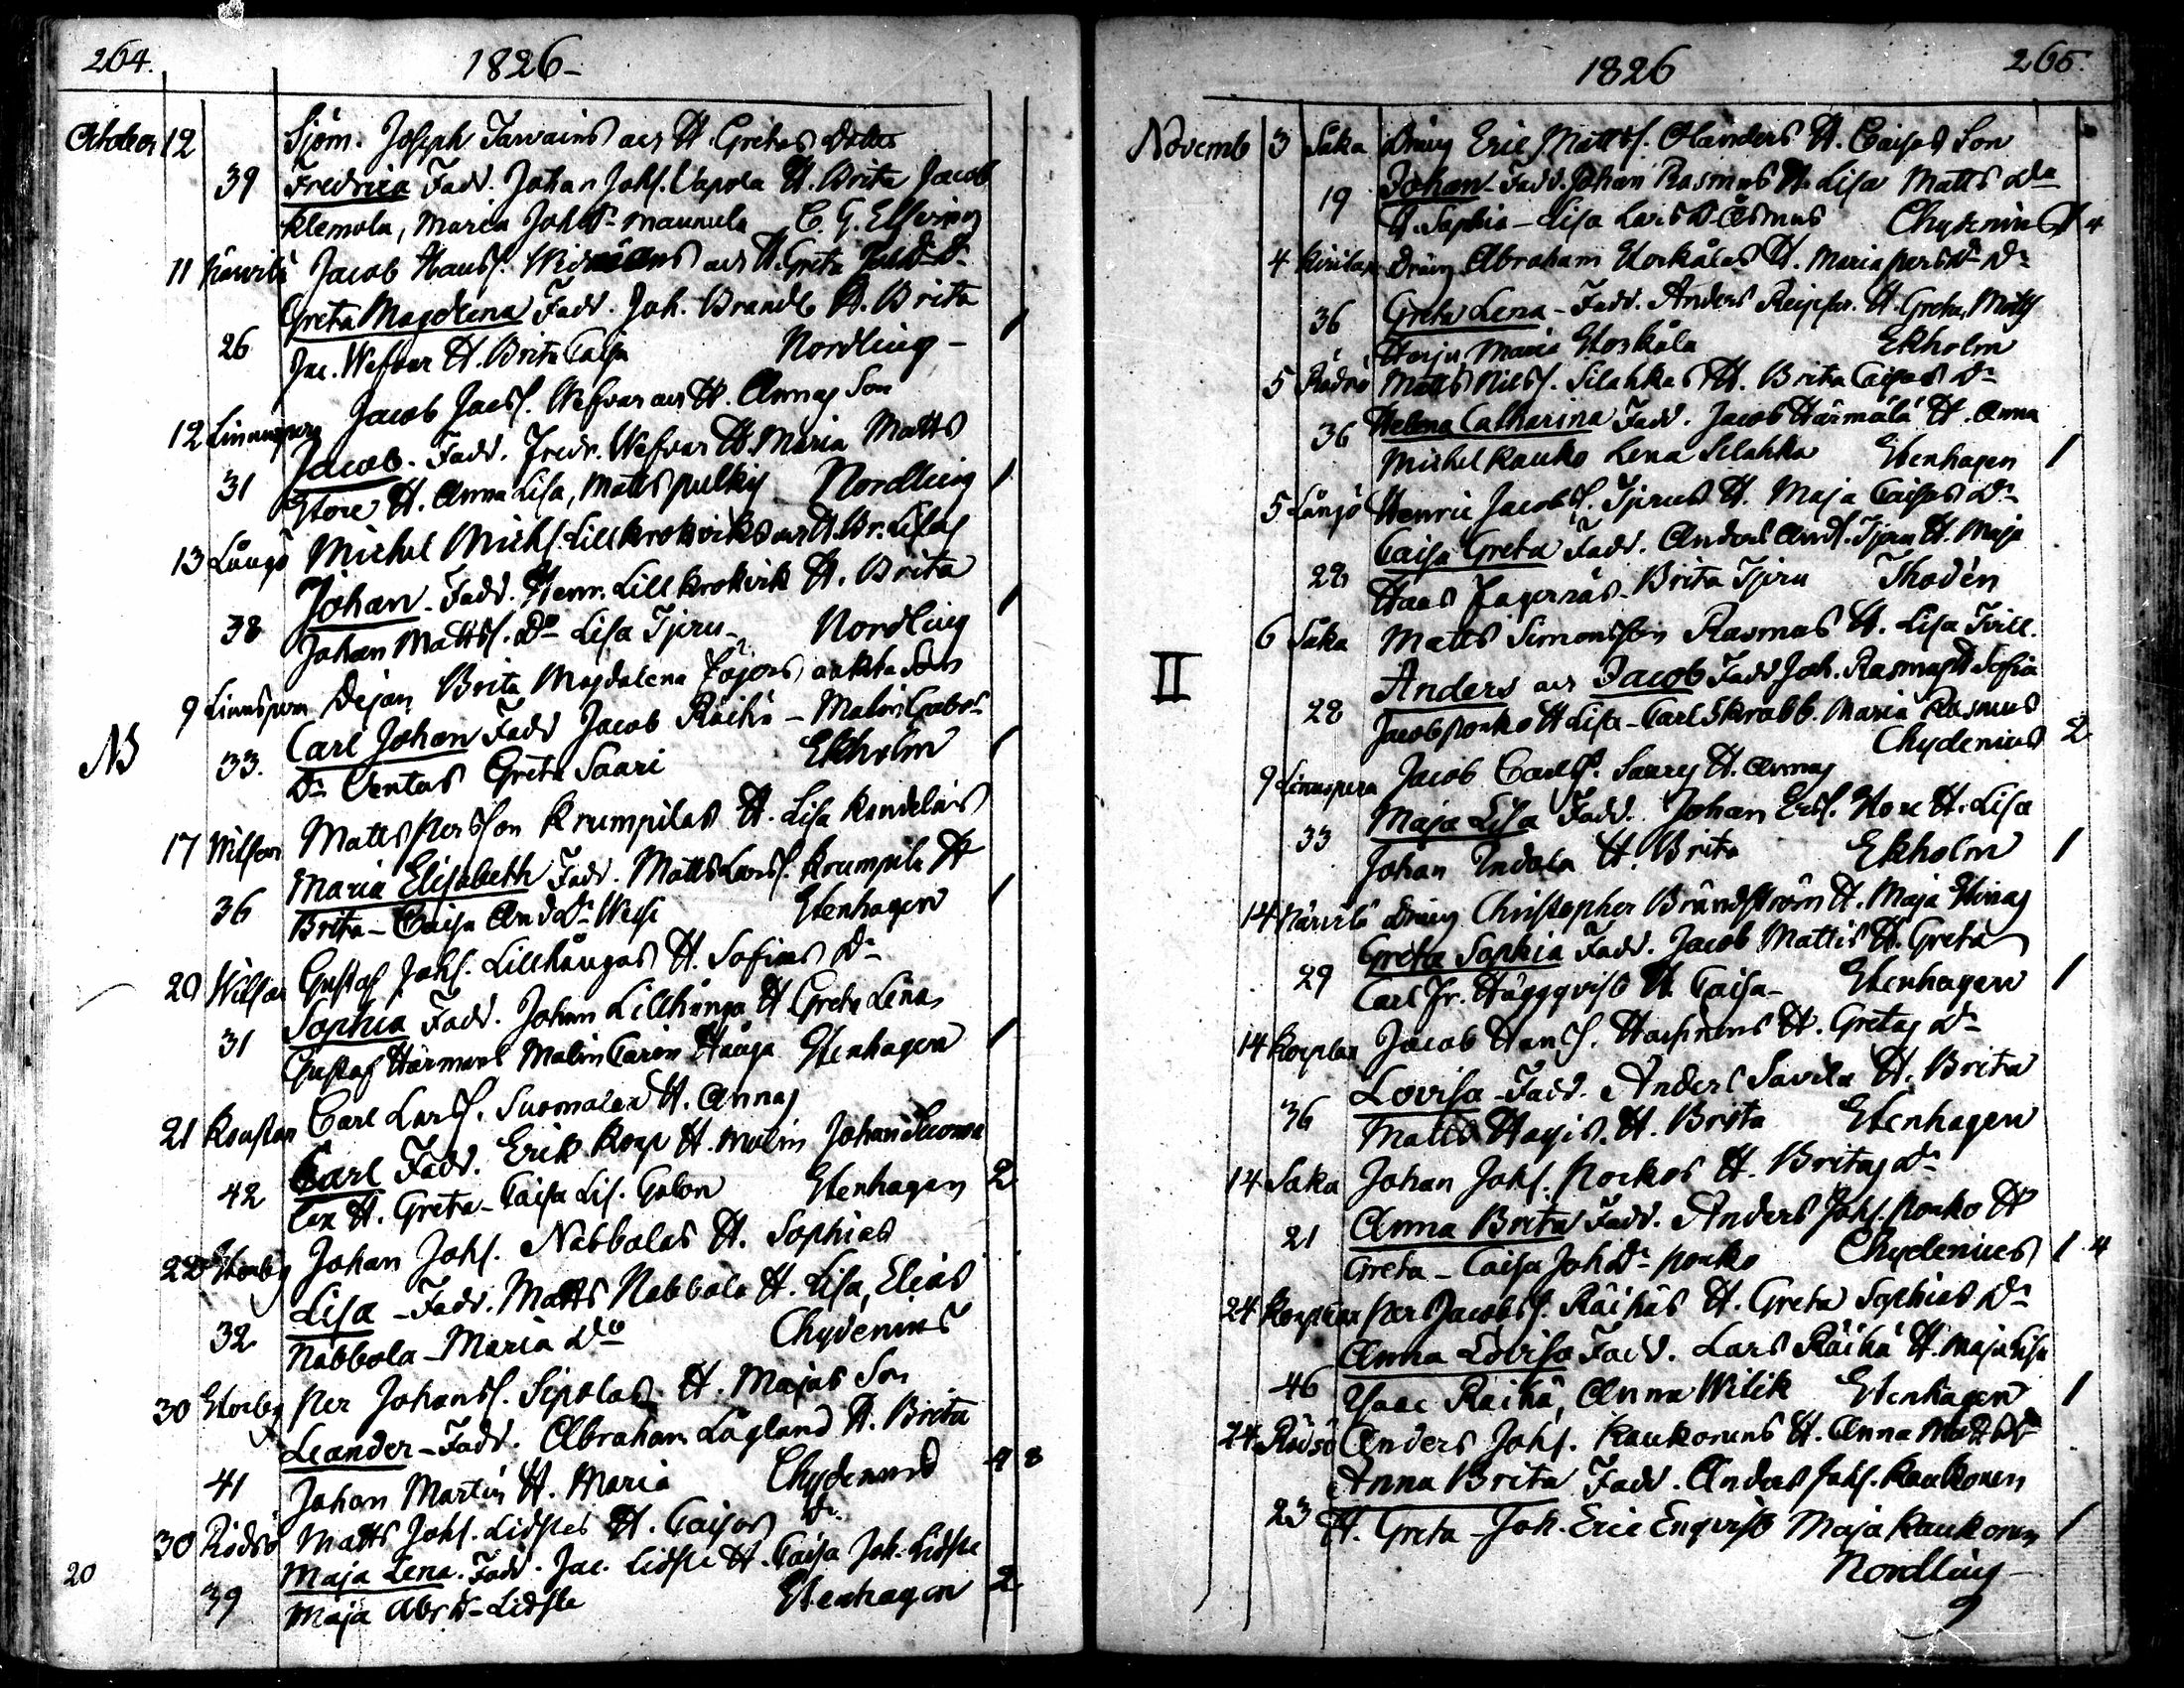 264. 1826-
October 12 Sjöm. Joseph Tarvains och H. Gretas Dotter
39 Fredrica Fadd. Johan Johs. Vapola H. Brita Jacob
Klemola, Maria Johsdr Maunula C. G. Elfving
11 Jacob Hanss. och H. Greta
Greta Magdlena Fadd. Joh. Brandt H. Brita
26 Jac. Wefvar H. Brita Caisa Nordling - 1
12 Linnusperä Jacob Jacss. Wefvar och H. Annas Son
Jacob. Fadd. Fredr. Wefvar H. Maria Matts
31 Store H. Anna Lisa, Matts pulkis Nordling 1
13 Långö Michel Michs. Lillkrokviks och H. Br. Lisas
Johan - Fadd. Henr. Lillkrokvik H. Brita
38 Johan Mattss. Do Lisa Tjeru - Nordling 1
9 Linusperä Dejan Brita Magdalena oäkta Son
NB Carl Johan Fadd Jacob Räihä - Malin
33. Dr Ventus Greta Saari Ekholm 1
17 Matts Persson Krumpilas H. Lisa
Maria Elisabeth Fadd. Matts Larss. Krumpila H
36 Brita - Caisa And. Dr Stenhagen 1
20 Gustaf Johs. Lillhångas H. Sofias Dr
Sophia Fadd. Johan Lillhånga H Greta Lena
31 Gustaf Härmal Malin Carin Haåga Stenhagen 1
21 Carl Larss. Suomalax H. Annas
Carl Fadd. Erik Korp H. Malin Johan
42 H. Greta - Caisa Lis. Stenhagen 2
22 Storby Johan Johs. Nabbolas H. Sophias
Lisa - Fadd. Matts Nabbola H. Lisa, Elias
32 Nabbola - Maria Do Chydenius
30 Storby Per Johanss. Sipolas H. Majas Son
Leander - Fadd. Abraham Lågland H. Brita
41 Johan Martin H. Maria Chydenius 4 8
30 Rödsö Matts Johs. Lidstes H. Caisas Dr
Maja Lena. Fadd. Jac. Lidste H. Caisa Joh. Lidste
20 39 Maja Abr Dr Lidste Stenhagen 2
1826 265.
Novemb 3 Såka Dräng Eric Mattss. Olanders H. Caisas Son
19 Johan - Fadd. Johan Rasmus H. Lisa Matts Do
H. Sophia - Lisa Lars D. Åsmus Chydenius 4
4 Dräng Abraham Storkålas H. Maria Persdr Dr
36 Greta Lena - Fadd. Anders H. Greta, Matts
Harju Maria Storkåla Ekholm
5 Rödsö Matts Nilss. Silahkas H. Brita Caisas Dr
36 Helena Catharina Fadd. Jacob Härmälä H. Anna
Michel Kauko Lena Silahka Stenhagen 1
5 Långö Henric Jacobss. Tjerus H. Maja Caisas Dr
Caisa Greta Fadd. Anders Ands. Tjeru H. Maja
28 Hans Fagernäs - Brita Tjeru Thodén
6 Såka Matts Simonsson Rasmus H. Lisa Tvill.
II Anders och Jacob Fadd Joh. Rasmus H Sofia
28 Jacob Porko H Lisa - Carl Skrabb. Maria Rasmus
Chydenius 2
9 Linusperä Jacob Carlss. Saaris H. Annas
Maja Lisa Fadd. Johan Erss. Store H. Lisa
33 Johan Indola H. Brita Ekholm 1
14 Närvilä Dräng Christopher Brandström H. Maja Stinas
Greta Sophia Fadd. Jacob Mattis H. Greta
29 Carl Fr. Häggqvist H. Caisa - Stenhagen 1
14 Korplax Jacob Hanss. H. Gretas Dr
Lovisa - Fadd. Anders Savila H. Brita
36 Matts Hagis. H. Brita Stenhagen
14 Såka Johan Johs. Porkos H. Britas Dr
21 Anna Brita Fadd. Anders Johs. Porko H
Greta - Caisa Joh Dr Porko Chydenius 1 4
24 Korplax Per Jacobss. Räihäs H. Greta Sophias Dr
Anna Lovisa Fadd. Lars Räihä H. Maja Lisa
46 Isaac Räihä, Anna Witik Stenhagen 1
24 Rödsö Anders Johs. Kaukonens H. Anna Matts Dr
Anna Brita Fadd. Anders Johs. Kaukonen
23 H. Greta - Joh. Eric Enqvist Maja Kaukonen 1
Nordling -